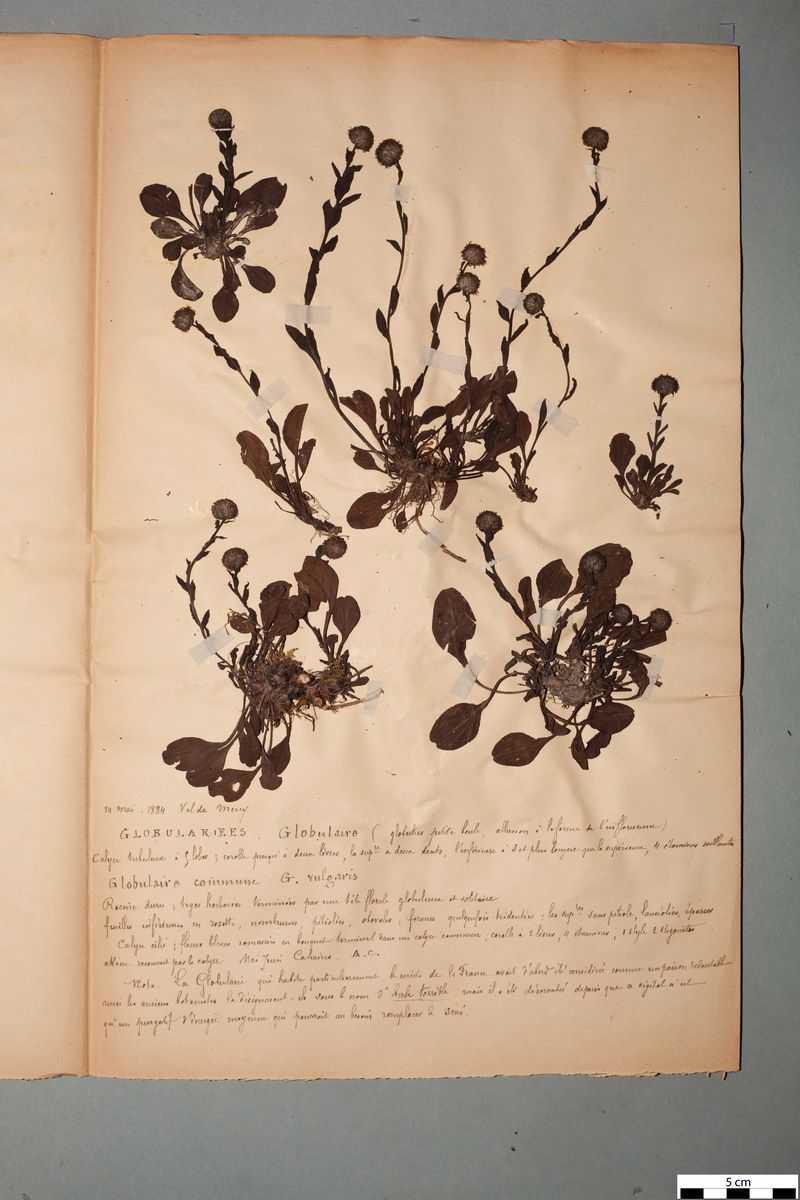 14 mai - 1884 Val de Mercy
GLOBULARIÉES. Globulaire (globulus petite boule, allusion à la forme de l'inflorescence)
Calyce tubuleux à 5 lobes; corolle presque à deux lèvres, la supre a deux dents, l'inférieure à 3 et plus longue que la supérieure, 4 étamines saillantes
Globulaire commune G. vulgaris
Racine dure; tiges herbacées terminées par une tête florale globuleuse et solitaire
feuilles inférieures en rosette, nombreuses, pétiolées, obovales, formes quelquefois tridentées; les supres sans pétiole, lancéolées, éparses
Calyce cilié; fleurs bleues ramassées en bouquet terminal dans un calyce commun; corolle à 2 lèvres, 4 étamines, 1 style 2 stigmates
akène recouvert par le calyce Mai Juin Calcaires. A.C.
Nota La Globulaire qui habite particulièrement le midi de la France avait d'abord été considéré comme un poison redoutable
aussi les anciens botanistes la désignaient-ils sous le nom d'herbe terrible mais il a été démontré depuis que ce végétal n'est
qu'un purgatif d'énergie moyenne qui pourrait au besoin remplacer le séné.
5 cm